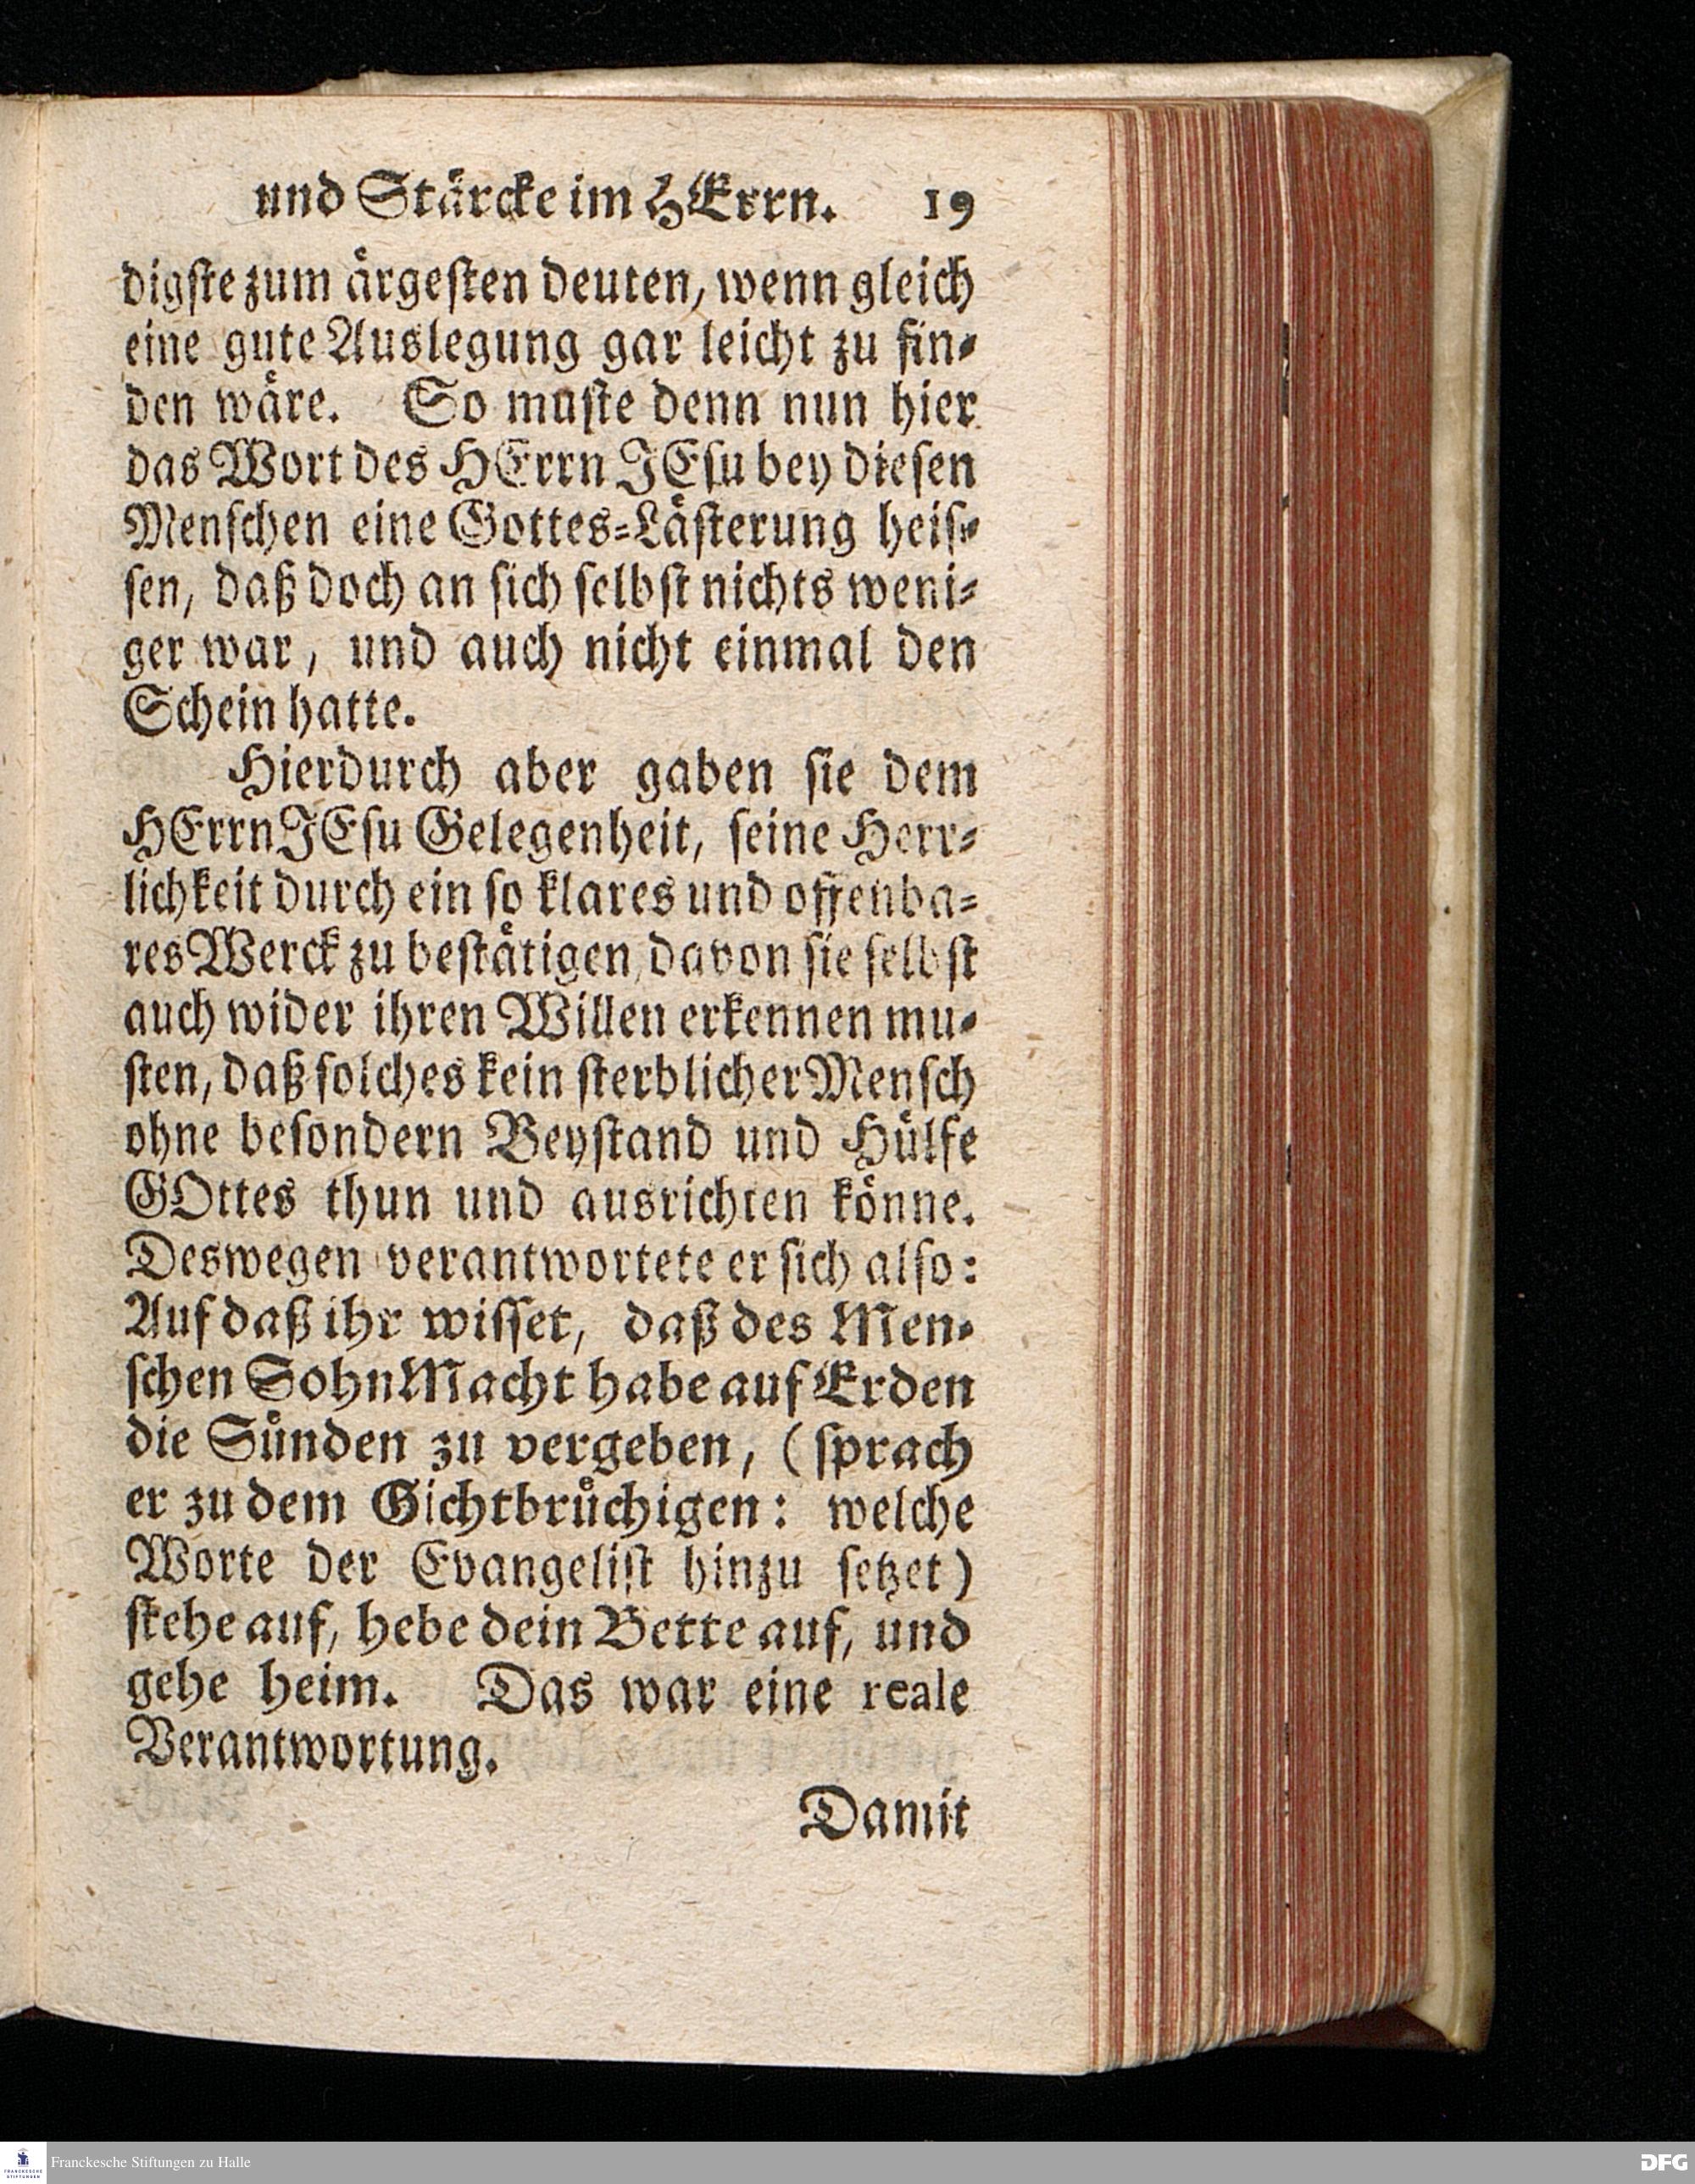 und Stärcke im HErrn. 19
digste zum ärgesten deuten, wenn gleich
eine gute Auslegung gar leicht zu fin-
den wäre. So muste denn nun hier
das Wort des HErrn JEsu bey diesen
Menschen eine Gottes-Lästerung heis-
sen, daß doch an sich selbst nichts weni-
ger war, und auch nicht einmal den
Schein hatte.
Hierdurch aber gaben sie dem
HErrn JEsu Gelegenheit, seine Herr-
lichkeit durch ein so klares und offenba-
res Werck zu bestätigen, davon sie selbst
auch wider ihren Willen erkennen mu-
sten, daß solches kein sterblicher Mensch
ohne besondern Beystand und Hülfe
GOttes thun und ausrichten könne.
Deswegen verantwortete er sich also:
Auf daß ihr wisset, daß des Men-
schen Sohn Macht habe auf Erden
die Sünden zu vergeben, (sprach
er zu dem Gichtbrüchigen: welche
Worte der Evangelist hinzu setzet)
stehe auf, hebe dein Bette auf, und
gehe heim. Das war eine reale
Verantwortung.
Damit
FRANCKESCHE STIFTUNGEN
Franckesche Stiftungen zu Halle
DFG